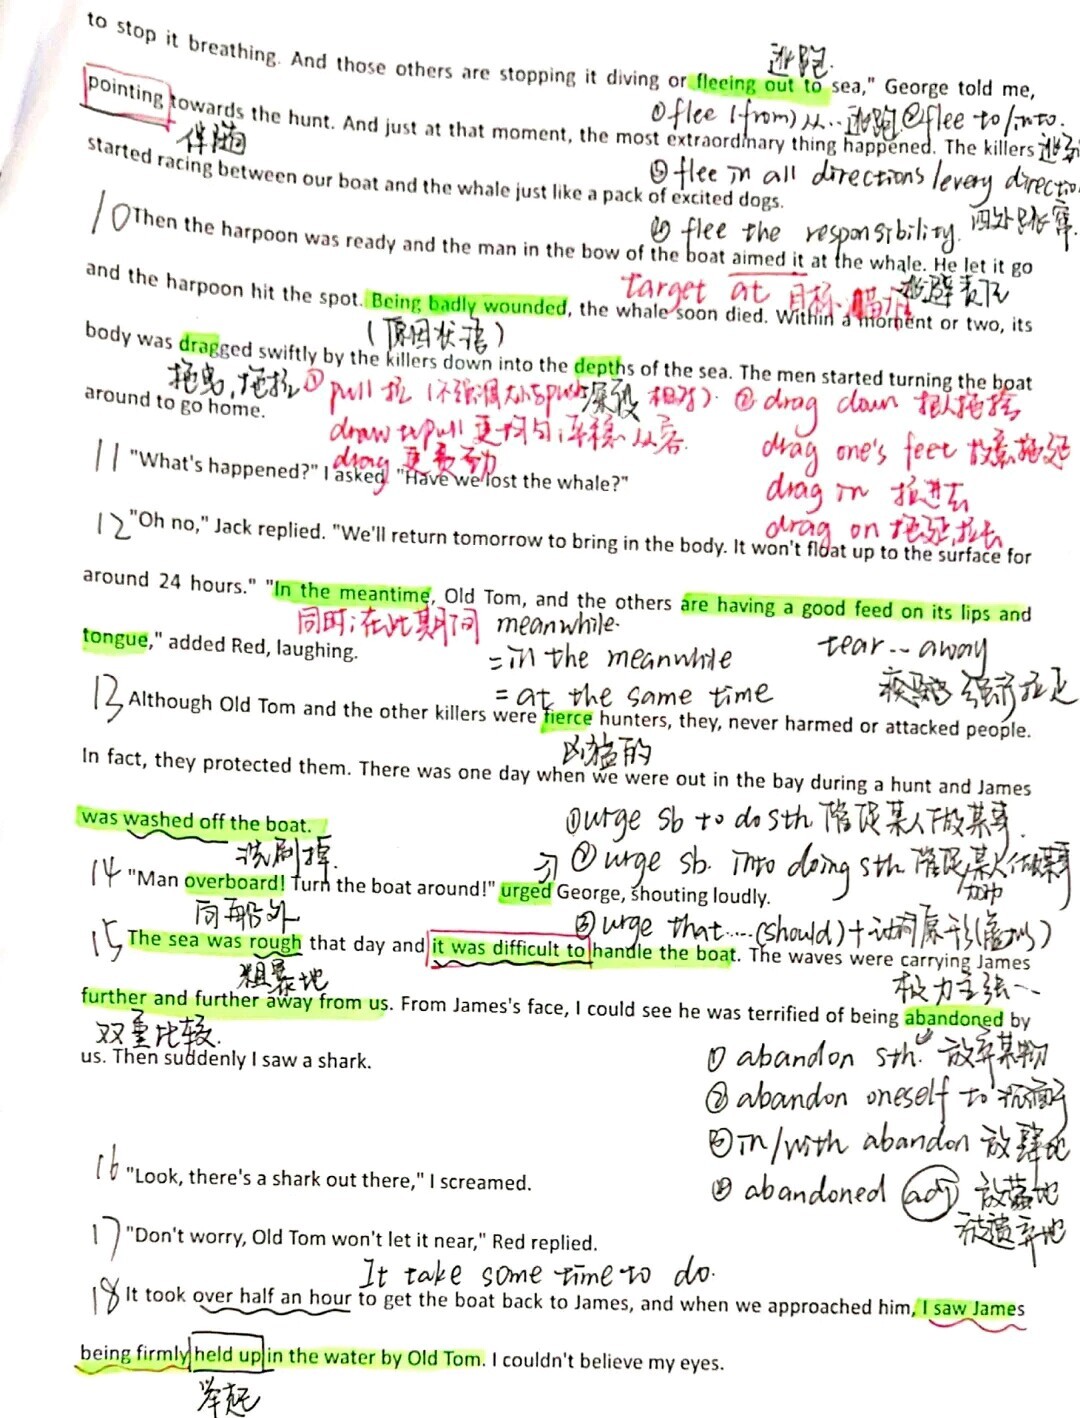 to stop it breathing. And those others are stopping it diving or fleeing out to sea," George told me,
逃跑.
pointing towards the hunt. And just at that moment, the most extraordinary thing happened. The killers
伴随
①flee (from) 从…逃跑 ②flee to/into.
started racing between our boat and the whale just like a pack of excited dogs.
③ flee in all directions/every direction
flee the responsibility.
10 Then the harpoon was ready and the man in the bow of the boat aimed it at the whale. He let it go
target at 目标、瞄准
逃避责任
and the harpoon hit the spot. Being badly wounded, the whale soon died. Within a moment or two, its
(原因状语)
body was dragged swiftly by the killers down into the depths of the sea. The men started turning the boat
拖曳,拖拉 ① pull 拉
深役
② drag down
around to go home.
draw 比pull 更均匀,平稳、从容
drag 更费劲
drag one's feet 故意拖延
11 "What's happened?" I asked. "Have we lost the whale?"
drag in 拖进去
drag on 拖延,拉长
12 "Oh no," Jack replied. "We'll return tomorrow to bring in the body. It won't float up to the surface for
around 24 hours." "In the meantime, Old Tom, and the others are having a good feed on its lips and
同时;在此期间 meanwhile.
tongue," added Red, laughing.
= in the meanwhile
tear -- away
= at the same time
13 Although Old Tom and the other killers were fierce hunters, they, never harmed or attacked people.
凶猛的
In fact, they protected them. There was one day when we were out in the bay during a hunt and James
was washed off the boat.
洗刷掉.
①urge sb to do sth 催促某人做某事.
② urge sb. into doing sth 催促某人做某事
14 "Man overboard! Turn the boat around!" urged George, shouting loudly.
向船外
③ urge that……(should)+动词原形(虚拟)
15 The sea was rough that day and it was difficult to handle the boat. The waves were carrying James
粗暴地
极力主张~
further and further away from us. From James's face, I could see he was terrified of being abandoned by
双重比较.
us. Then suddenly I saw a shark.
① abandon sth. 放弃某物
② abandon oneself to 沉湎于
③ in/with abandon 放肆地
16 "Look, there's a shark out there," I screamed.
④ abandoned adj 放荡地
被遗弃地
17 "Don't worry, Old Tom won't let it near," Red replied.
It take some time to do.
18 It took over half an hour to get the boat back to James, and when we approached him, I saw James
being firmly held up in the water by Old Tom. I couldn't believe my eyes.
举起